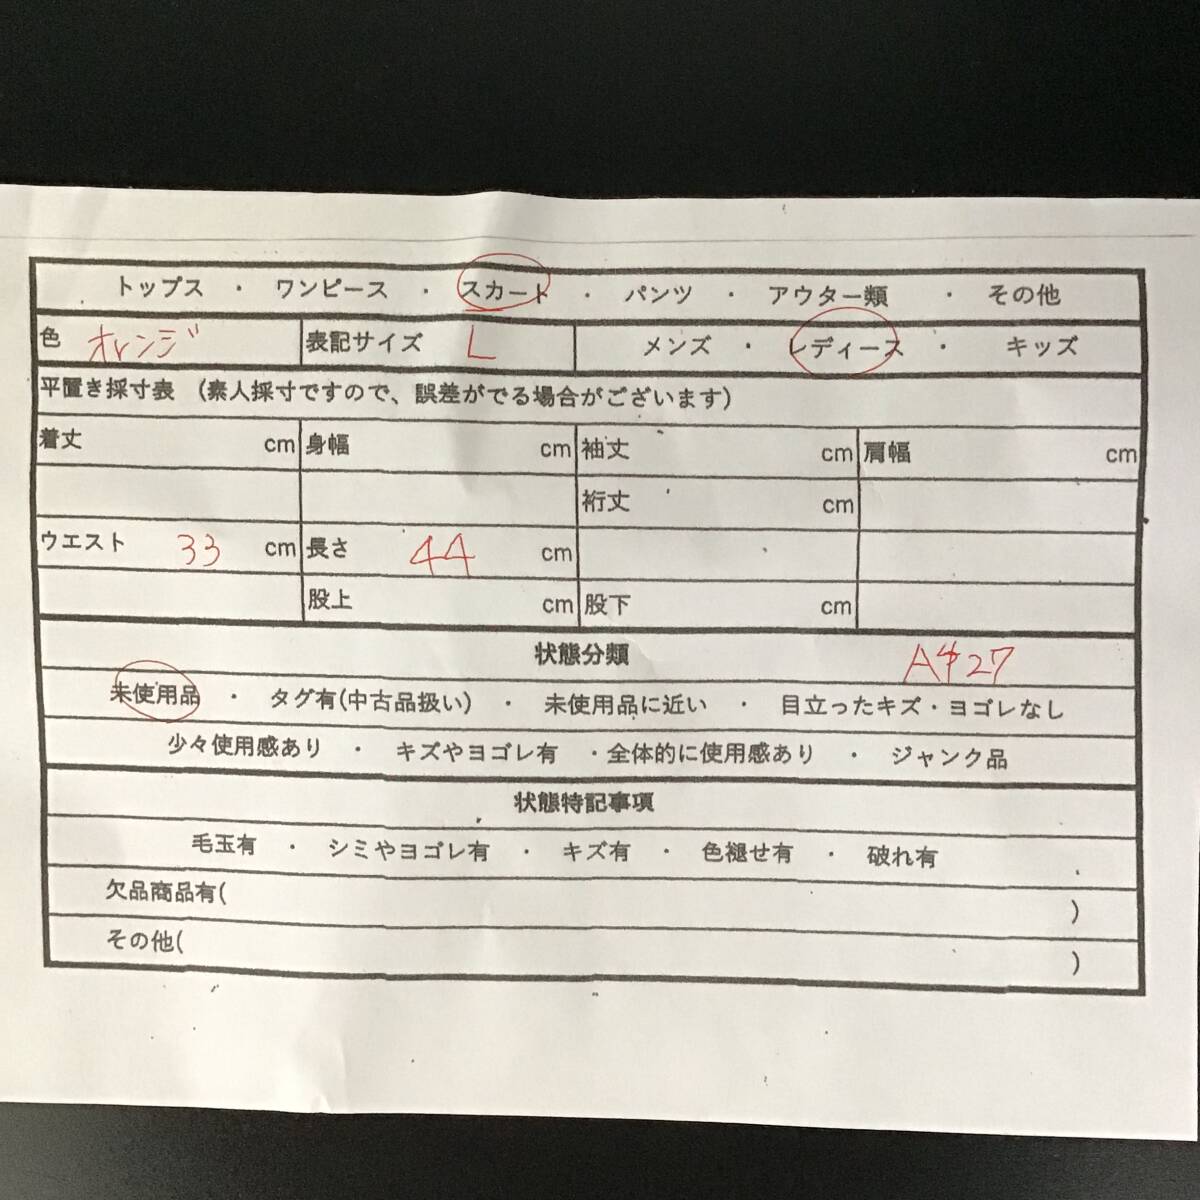 トップス ・ ワンピース ・ スカート ・ パンツ ・ アウター類 ・ その他
色 オレンジ 表記サイズ L メンズ ・ レディース ・ キッズ
平置き採寸表 (素人採寸ですので、誤差がでる場合がございます)
着丈 cm 身幅 cm 袖丈 cm 肩幅 cm
裄丈 cm
ウエスト 33 cm 長さ 44 cm
股上 cm 股下 cm
状態分類
未使用品 ・ タグ有(中古品扱い) ・ 未使用品に近い ・ 目立ったキズ・ヨゴレなし
少々使用感あり ・ キズやヨゴレ有 ・全体的に使用感あり ・ ジャンク品
状態特記事項
毛玉有 ・ シミやヨゴレ有 ・ キズ有 ・ 色褪せ有 ・ 破れ有
欠品商品有( )
その他( )